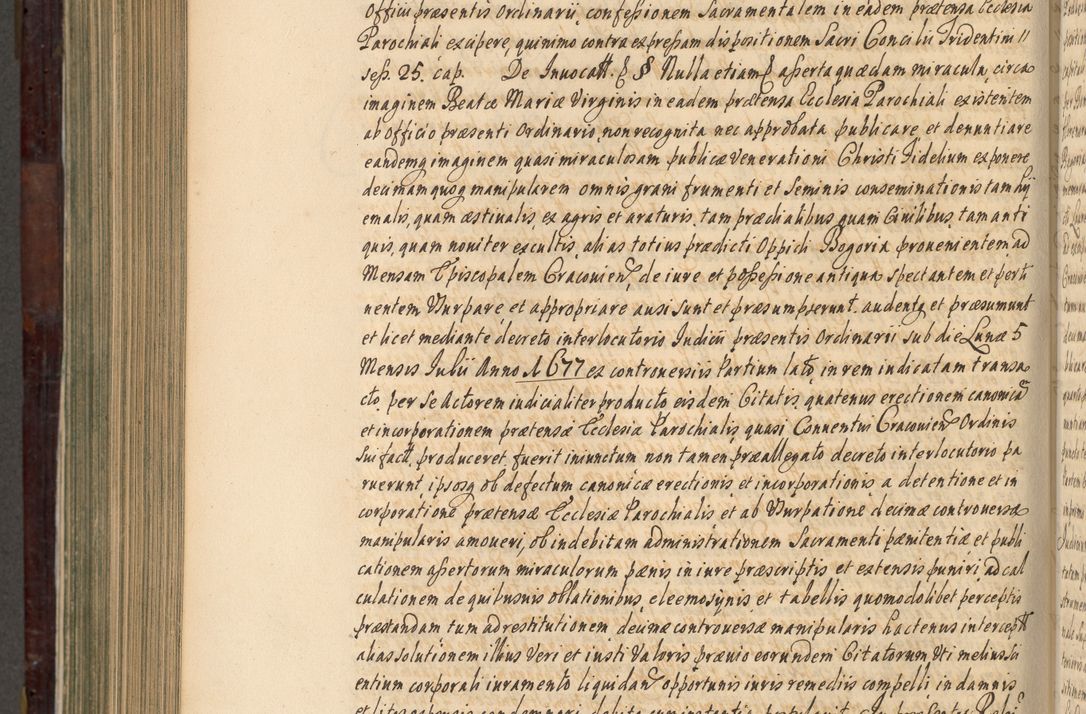 Officii præsentis Ordinarii, confessionem Sacramentalem in eadem prætensa Ecclesia
Parochiali excipere, quinimo contra expressam dispositionem Sacri Concilii Tridentini
sess. 25. cap. De Invocatt. § Nulla etiam asserta quædam miracula, circa
imaginem Beatæ Mariæ Virginis in eadem prætensa Ecclesia Parochiali existentem
ab officio præsenti Ordinario, non recognita nec approbata publicare, et denuntiare
eandemq imaginem quasi miraculosam publicæ venerationi Christi Fidelium exponere
decimam quoq manipularem omnis grani frumenti et Seminis conseminationis tam hy
emalis, quam æstivalis, ex agris et araturis, tam prædialibus, quam Civilibus, tam anti
quis, quam noviter excultis, alias totius prædicti Oppidi Begoria provenientem ad
Mensam Episcopalem Cracovien, de iure et possessione antiqua spectantem et perti
nentem Usurpare et appropriare ausi sunt et præsumpserunt. audentq et præsumunt
et licet mediante decreto interlocutorio Iudicii præsentis Ordinarii sub die Lunæ 5
Mensis Iulii Anno 1677 ex controversiis Partium lato, in rem iudicatam transa
cto per se Actorem iudicialiter producto eisdem Citatis, quatenus erectionem canonica
et incorporationem prætensæ Ecclesiæ Parochialis quasi Conventui Cracovien Ordinis
sui fact, produceret, fuerit iniunctum non tamen præallegato decreto interlocutorio pa
ruerunt, ipsosq ob defectum canonicæ erectionis, et incorporationis, a detentione et in
corporatione prætensæ Ecclesiæ Parochialis et ab Usurpatione decimæ controversæ
manipularis amoveri, ob indebitam administrationem Sacramenti pænitentiæ et publi
cationem assertorum miraculorum pænis in iure præscriptis et extensis puniri, ad cal
culationem de quibusvis oblationibus, eleemosynis et tabellis quomodolibet perceptis
præstandam tum ad restitutionem decimæ controversæ manipularis hactenus intercept
alias solutionem illius veri et iusti valoris prævio eorundem Citatorum Uti melius sci
entium corporali iuramento liquidan opportunis iuris remediis compelli in damnis